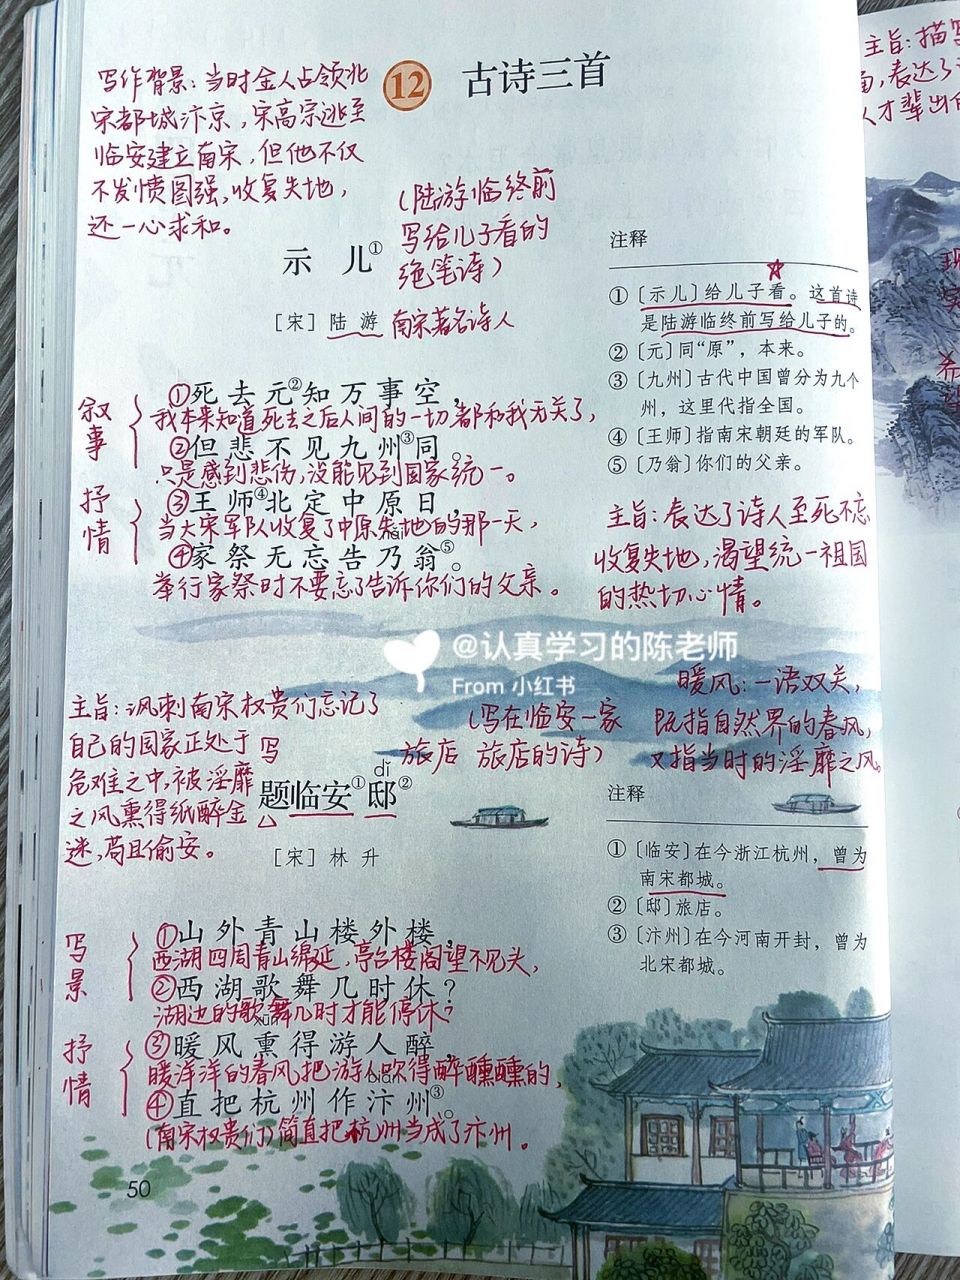 写作背景：当时金人占领北
宋都城汴京，宋高宗逃至
临安建立南宋，但他不仅
不发愤图强，收复失地，
还一心求和。
12 古诗三首
(陆游临终前
写给儿子看的
绝笔诗)
示 儿①
[宋] 陆 游 南宋著名诗人
叙事
①死去元②知万事空，
我本来知道死去之后人间的一切都和我无关了，
②但悲不见九州③同。
只是感到悲伤，没能见到国家统一。
抒情
③王师④北定中原日，
当大宋军队收复了中原失地的那一天，
nǎi
④家祭无忘告乃翁⑤。
举行家祭时不要忘了告诉你们的父亲。
注释
①〔示儿〕给儿子看。这首诗
是陆游临终前写给儿子的。
②〔元〕同“原”，本来。
③〔九州〕古代中国曾分为九个
州，这里代指全国。
④〔王师〕指南宋朝廷的军队。
⑤〔乃翁〕你们的父亲。
主旨：表达了诗人至死不忘
收复失地，渴望统一祖国
的热切心情。
@认真学习的陈老师
From 小红书
主旨：讽刺南宋权贵们忘记了
自己的国家正处于
危难之中，被淫靡
之风熏得纸醉金
迷，苟且偷安。
(写在临安一家
旅店 旅店的诗)
暖风：一语双关，
既指自然界的春风，
又指当时的淫靡之风。
写
dǐ
题临安①邸②
[宋] 林 升
写景
①山外青山楼外楼，
西湖四周青山绵延，亭台楼阁望不见头，
②西湖歌舞几时休？
湖边的歌舞几时才能停休？
抒情
xūn
③暖风熏得游人醉，
暖洋洋的春风把游人吹得醉醺醺的，
biàn
④直把杭州作汴州③。
(南宋权贵们)简直把杭州当成了汴州。
注释
①〔临安〕在今浙江杭州，曾为
南宋都城。
②〔邸〕旅店。
③〔汴州〕在今河南开封，曾为
北宋都城。
50
主旨：描写
表达了
人才辈出的